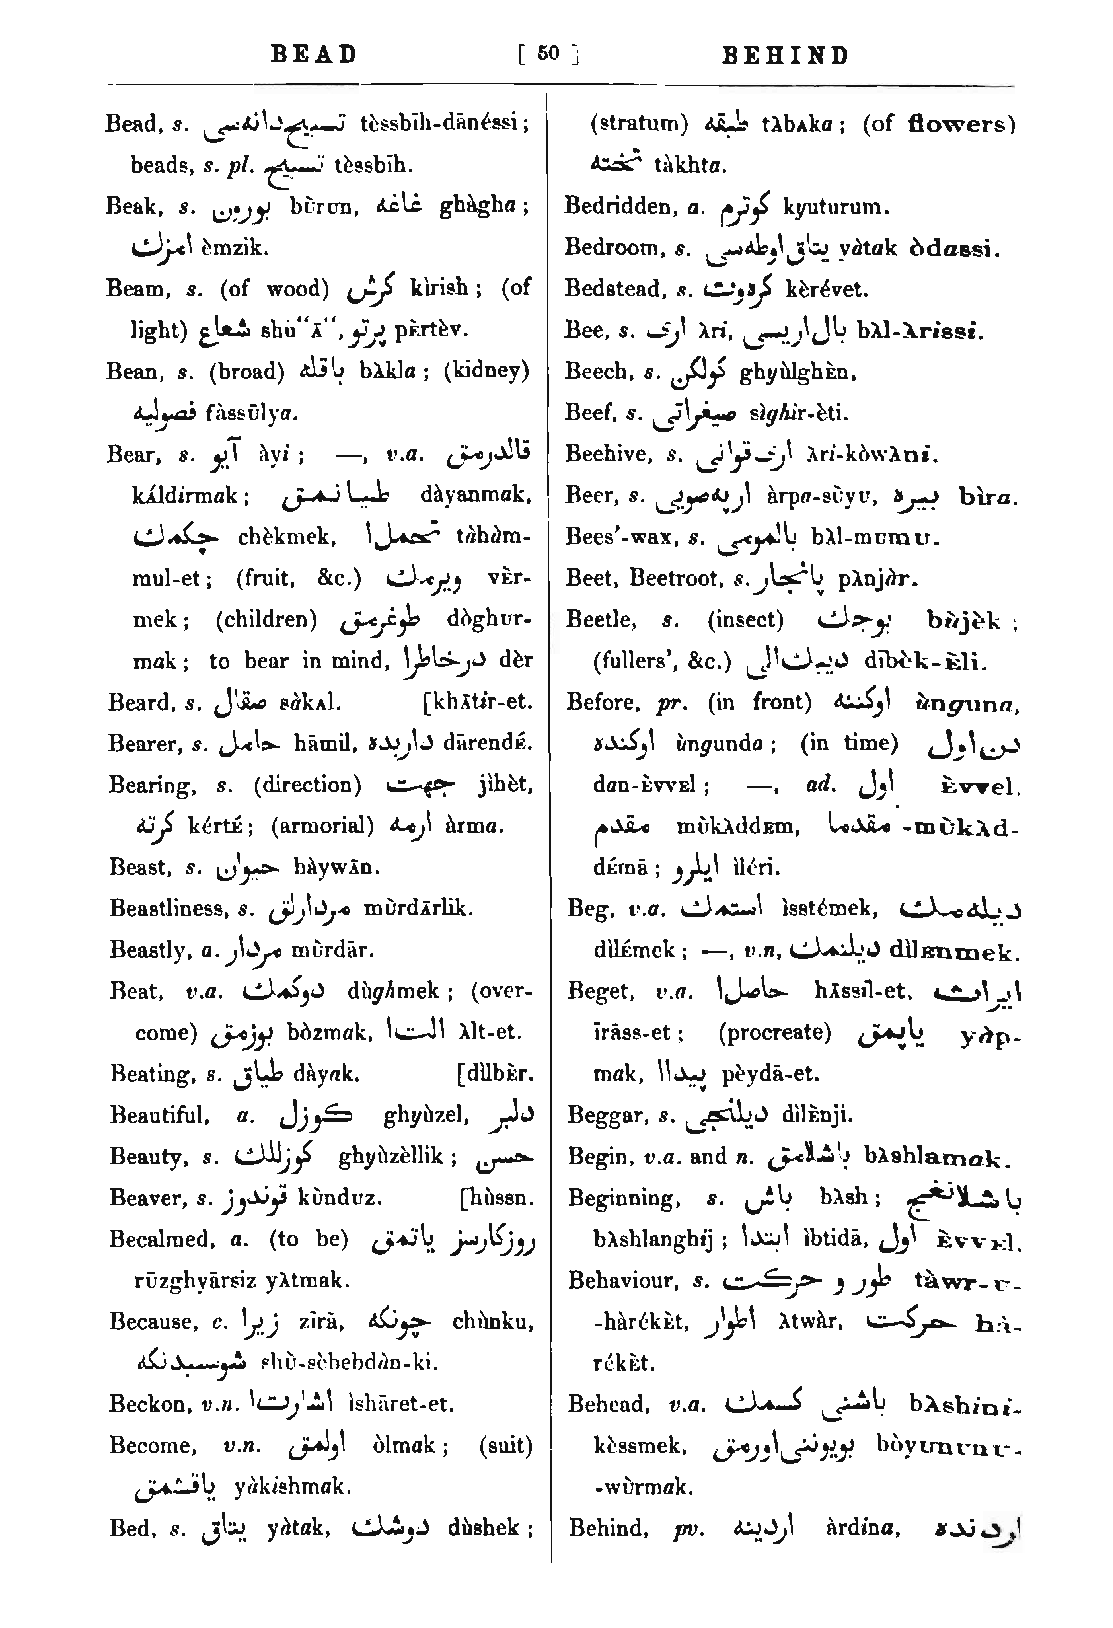 BEAD [ 50 ] BEHIND
Bead, s. تسبيح دانه‌سى tèssbīh-dānéssi;
beads, s. pl. تسبيح tèssbīh.
Beak, s. بورون bùrun, غاغه ghàgha;
امزك èmzik.
Beam, s. (of wood) كرش kìrish; (of
light) شعاع shù“ᴀ̄“, پرتو pᴇ̀rtèv.
Bean, s. (broad) باقله bᴀ̀kla; (kidney)
فصوليه fàssūlya.
Bear, s. آيو àyi; —, v.a. قالدرمق
kᴀ́ldirmak; طيانمق dàyanmak,
چكمك chèkmek, تحمل ا tàhàm-
mul-et; (fruit, &c.) ويرمك vᴇ̀r-
mek; (children) طوغرمق dòghur-
mak; to bear in mind, درخاطر ا dèr
Beard, s. صقال sàkᴀl. [khᴀ̄tir-et.
Bearer, s. حامل hāmil, دارنده dārendᴇ́.
Bearing, s. (direction) جهت jìhèt,
كرته kértᴇ́; (armorial) ارمه àrma.
Beast, s. حيوان hàywān.
Beastliness, s. مردارلق mùrdᴀ̄rlik.
Beastly, a. مردار mùrdār.
Beat, v.a. دوكمك dùghmek; (over-
come) بوزمق bòzmak, الت ا ᴀ̀lt-et.
Beating, s. طياق dàyak. [dìlbᴇ̀r.
Beautiful, a. كوزل ghyùzel, دلبر
Beauty, s. كوزللك ghyùzèllik; حسن
Beaver, s. قوندوز kùnduz. [hùssn.
Becalmed, a. (to be) روزكارسز ياتمق
rūzghyārsiz yᴀ̀tmak.
Because, c. زيرا zīrā, چونكه chùnku,
شوسببدنكه shù-sèbebdàn-ki.
Beckon, v.n. اشارت ا ìshāret-et.
Become, v.n. اولمق òlmak; (suit)
ياقشمق yàkishmak.
Bed, s. يتاق yàtak, دوشك dùshek;
(stratum) طبقه tᴀ̀bᴀka; (of flowers)
تخته tàkhta.
Bedridden, a. كوترم kyuturum.
Bedroom, s. يتاق اوطه‌سى yàtak òdassi.
Bedstead, s. كروت kèrévet.
Bee, s. ارى ᴀ̀ri, بال اريسى bᴀ̀l-ᴀ̀rissi.
Beech, s. كولكن ghyùlghᴇ̀n,
Beef, s. صيغراتى sìghìr-èti.
Beehive, s. ارى قوانى ᴀ̀ri-kòwᴀ̀ni.
Beer, s. ارپه‌صويى àrpa-sùyu, بيره bìra.
Bees’-wax, s. بالمومى bᴀ̀l-mumu.
Beet, Beetroot, s. پانجار pᴀ̀njàr.
Beetle, s. (insect) بوجك bùjèk;
(fullers’, &c.) ديبك الى dībèk-ᴇ̀li.
Before, pr. (in front) اوكنه ùnguna,
اوكنده ùngunda; (in time) دن اول
dan-ᴇ̀vvᴇl; —, ad. اول ᴇ̀vvel,
مقدم mùkᴀ̀ddᴇm, مقدما -mùkᴀ̀d-
dᴇ́mā; ايلرو ìléri.
Beg, v.a. استمك ìsstémek, ديله‌مك
dìlᴇ́mek; —, v.n, ديلنمك dìlᴇnmek.
Beget, v.a. حاصل ا hᴀ̄ssìl-et, ايراث
īrāss-et; (procreate) ياپمق yàp-
mak, پيدا ا pèydā-et.
Beggar, s. ديلنجى dìlènji.
Begin, v.a. and n. باشلامق bᴀ̀shlamak.
Beginning, s. باش bᴀ̀sh; باشلانغج
bᴀ̀shlanghij; ابتدا ìbtidā, اول ᴇ̀vvᴇl.
Behaviour, s. طور و حركت tàwr-u-
-hàrékᴇ̀t, اطوار ᴀ̀twàr, حركت hà-
rékᴇ̀t.
Behead, v.a. باشنى كسمك bᴀ̀shini-
kèssmek, بويوننى اورمق bòyununu-
-wùrmak.
Behind, pv. اردينه àrdina, اردنده